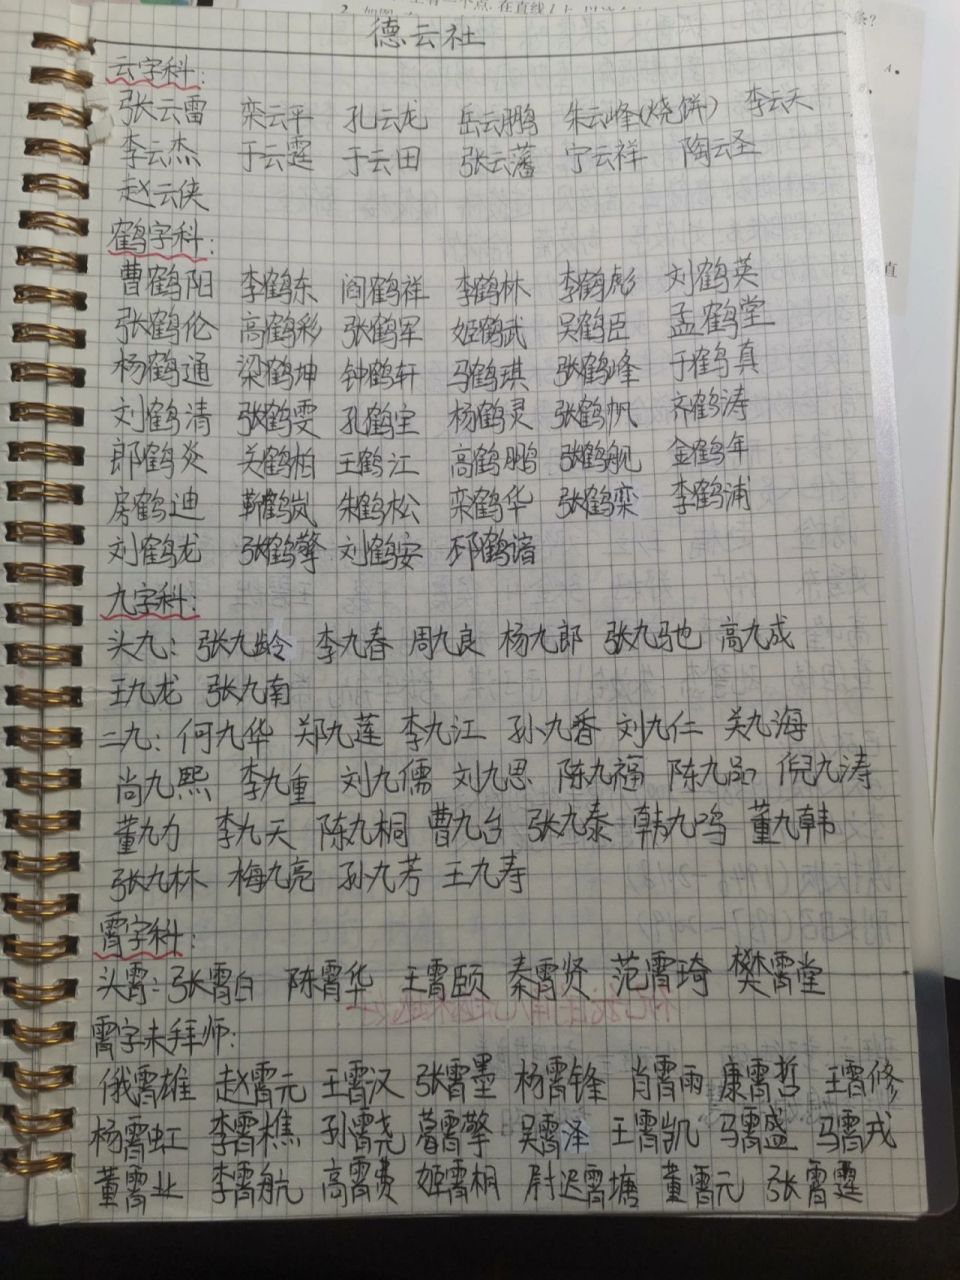 德云社
云字科:
张云雷 栾云平 孔云龙 岳云鹏 朱云峰(烧饼) 李云天
李云杰 于云霆 于云田 张云藩 宁云祥 陶云圣
赵云侠
鹤字科:
曹鹤阳 李鹤东 阎鹤祥 李鹤林 李鹤彪 刘鹤英
张鹤伦 高鹤彩 张鹤军 姬鹤武 吴鹤臣 孟鹤堂
杨鹤通 梁鹤坤 钟鹤轩 马鹤琪 张鹤峰 于鹤真
刘鹤清 张鹤雯 孔鹤宝 杨鹤灵 张鹤帆 齐鹤涛
郎鹤炎 关鹤柏 王鹤江 高鹤鹏 张鹤舰 金鹤年
房鹤迪 靳鹤岚 朱鹤松 栾鹤华 张鹤栾 李鹤浦
刘鹤龙 张鹤擎 刘鹤安 邳鹤谙
九字科:
头九: 张九龄 李九春 周九良 杨九郎 张九驰 高九成
王九龙 张九南
二九: 何九华 郑九莲 李九江 孙九香 刘九仁 关九海
尚九熙 李九重 刘九儒 刘九思 陈九福 陈九品 倪九涛
董九力 李九天 陈九桐 曹九台 张九泰 韩九鸣 董九韩
张九林 梅九亮 孙九芳 王九寿
霄字科:
头霄: 张霄白 陈霄华 王霄颐 秦霄贤 范霄琦 樊霄堂
霄字未拜师:
俄霄雄 赵霄元 王霄汉 张霄墨 杨霄锋 肖霄雨 康霄哲 王霄修
杨霄虹 李霄樵 孙霄尧 葛霄擎 吴霄泽 王霄凯 马霄盛 马霄戎
董霄业 李霄航 高霄贵 姬霄桐 尉迟霄塘 董霄元 张霄霆